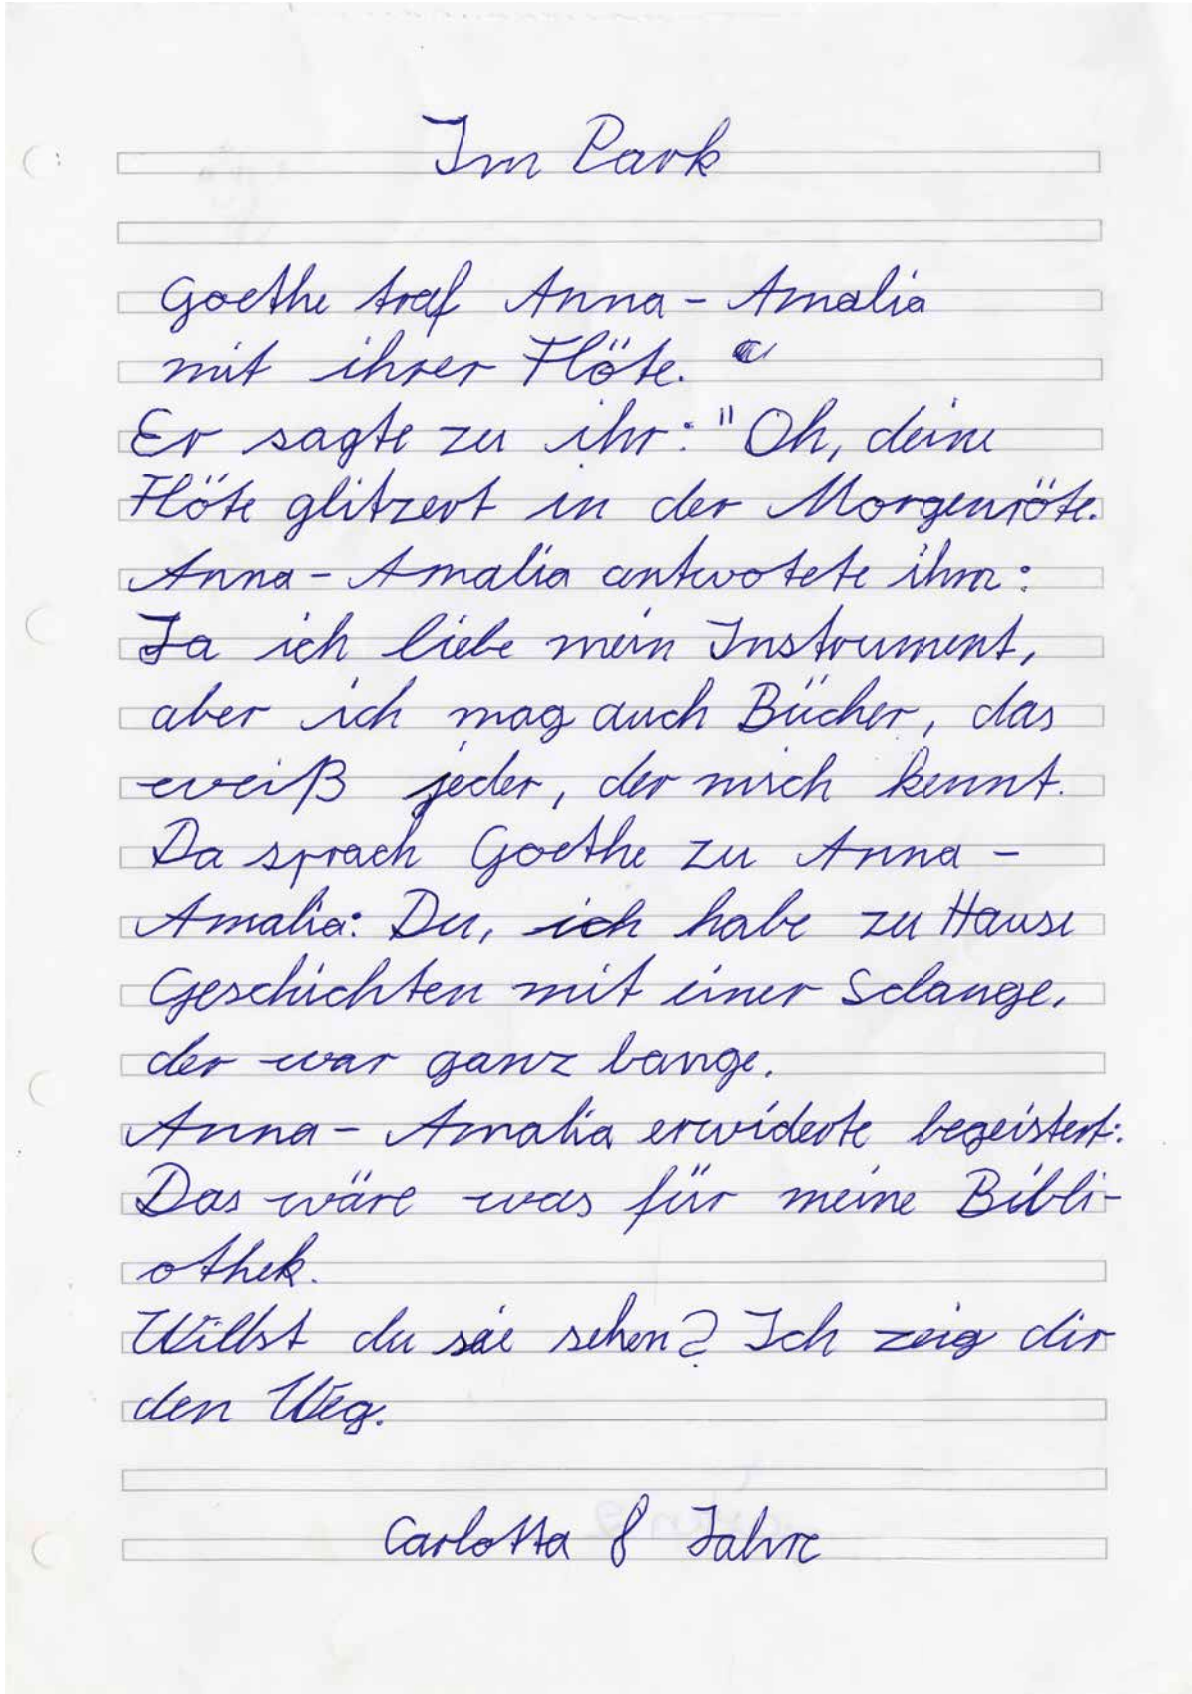 Im Park
Goethe traf Anna-Amalia
mit ihrer Flöte.
Er sagte zu ihr: "Oh, deine
Flöte glitzert in der Morgenröte.
Anna-Amalia antwotete ihm:
Ja ich liebe mein Instrument,
aber ich mag auch Bücher, das
weiß jeder, der mich kennt.
Da sprach Goethe zu Anna-
Amalia: Du, ich habe zu Hause
Geschichten mit einer Sclange,
der war ganz bange.
Anna-Amalia erwiderte begeistert:
Das wäre was für meine Bibli-
othek.
Willst du sie sehen? Ich zeig dir
den Weg.
Carlotta 8 Jahre